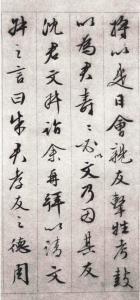 將以是日會親友擊牲考鼓
以為君壽〻文乃因其友
沈君文舛詣余再拜以請文
舛之言曰朱君孝友之德周